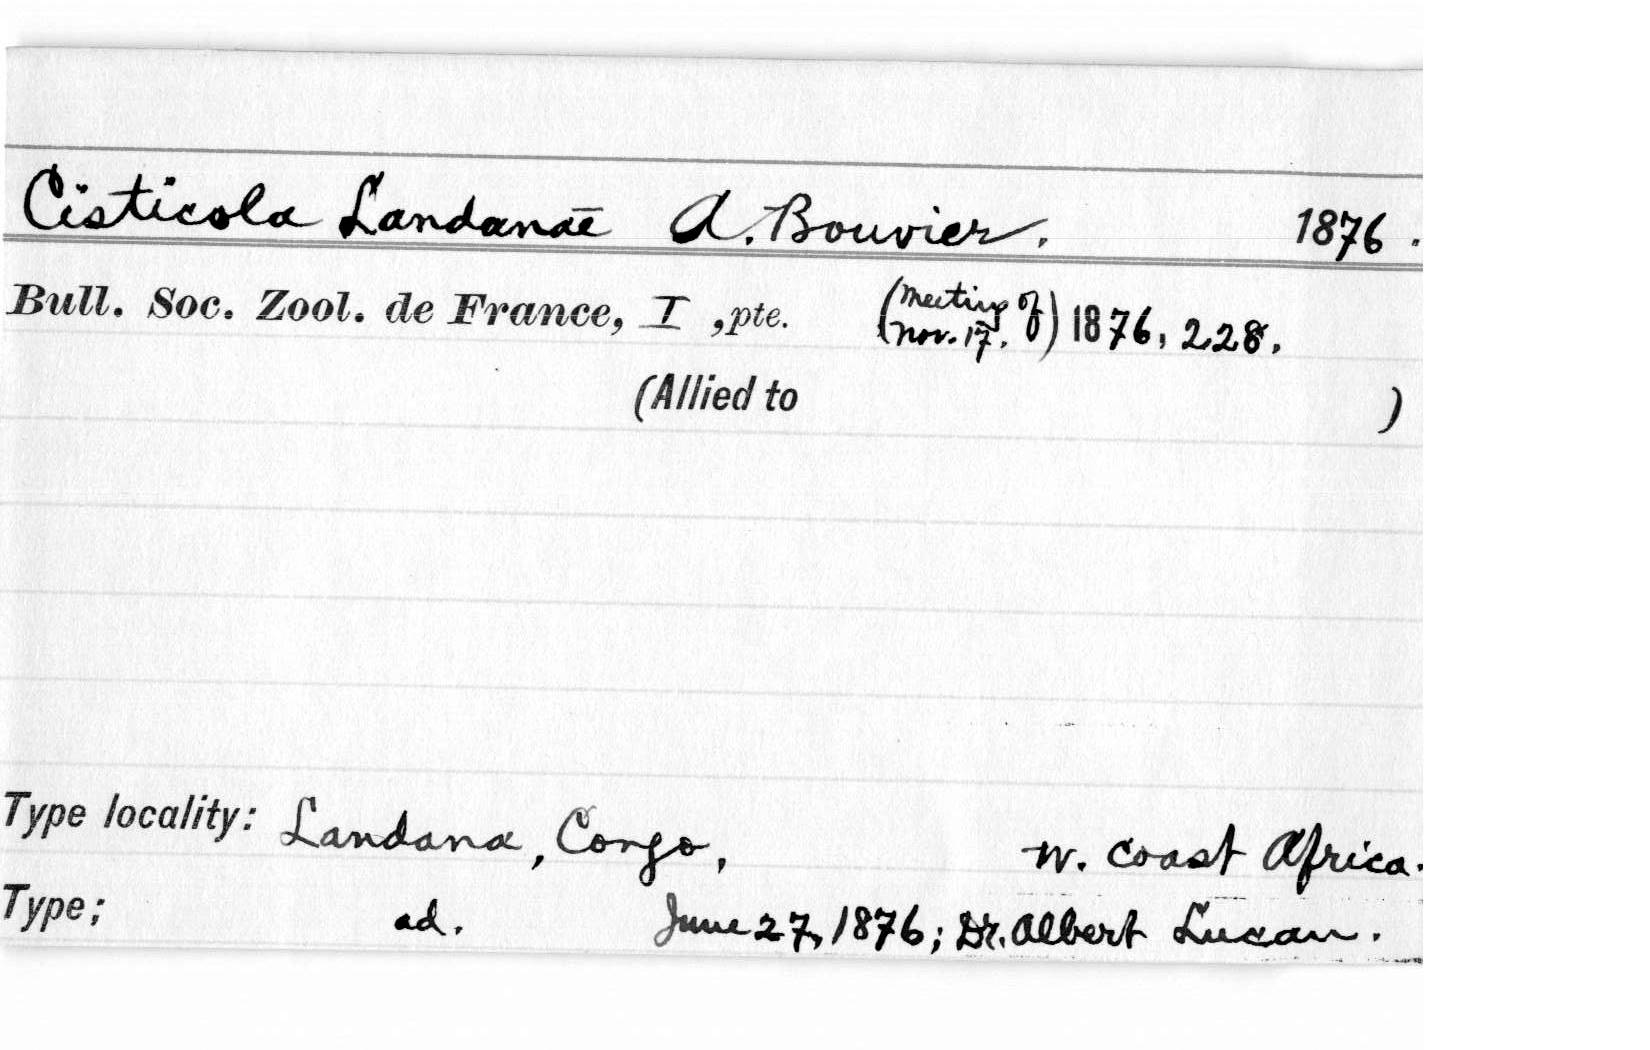 Cisticola Landanae A. Bouvier. 1876.
Bull. Soc. Zool. de France, I, pte. (Meeting of Nov. 17.) 1876, 228.
(Allied to )
Type locality: Landana, Congo, W. Coast Africa.
Type; ad. June 27, 1876; Dr. Albert Lucan.